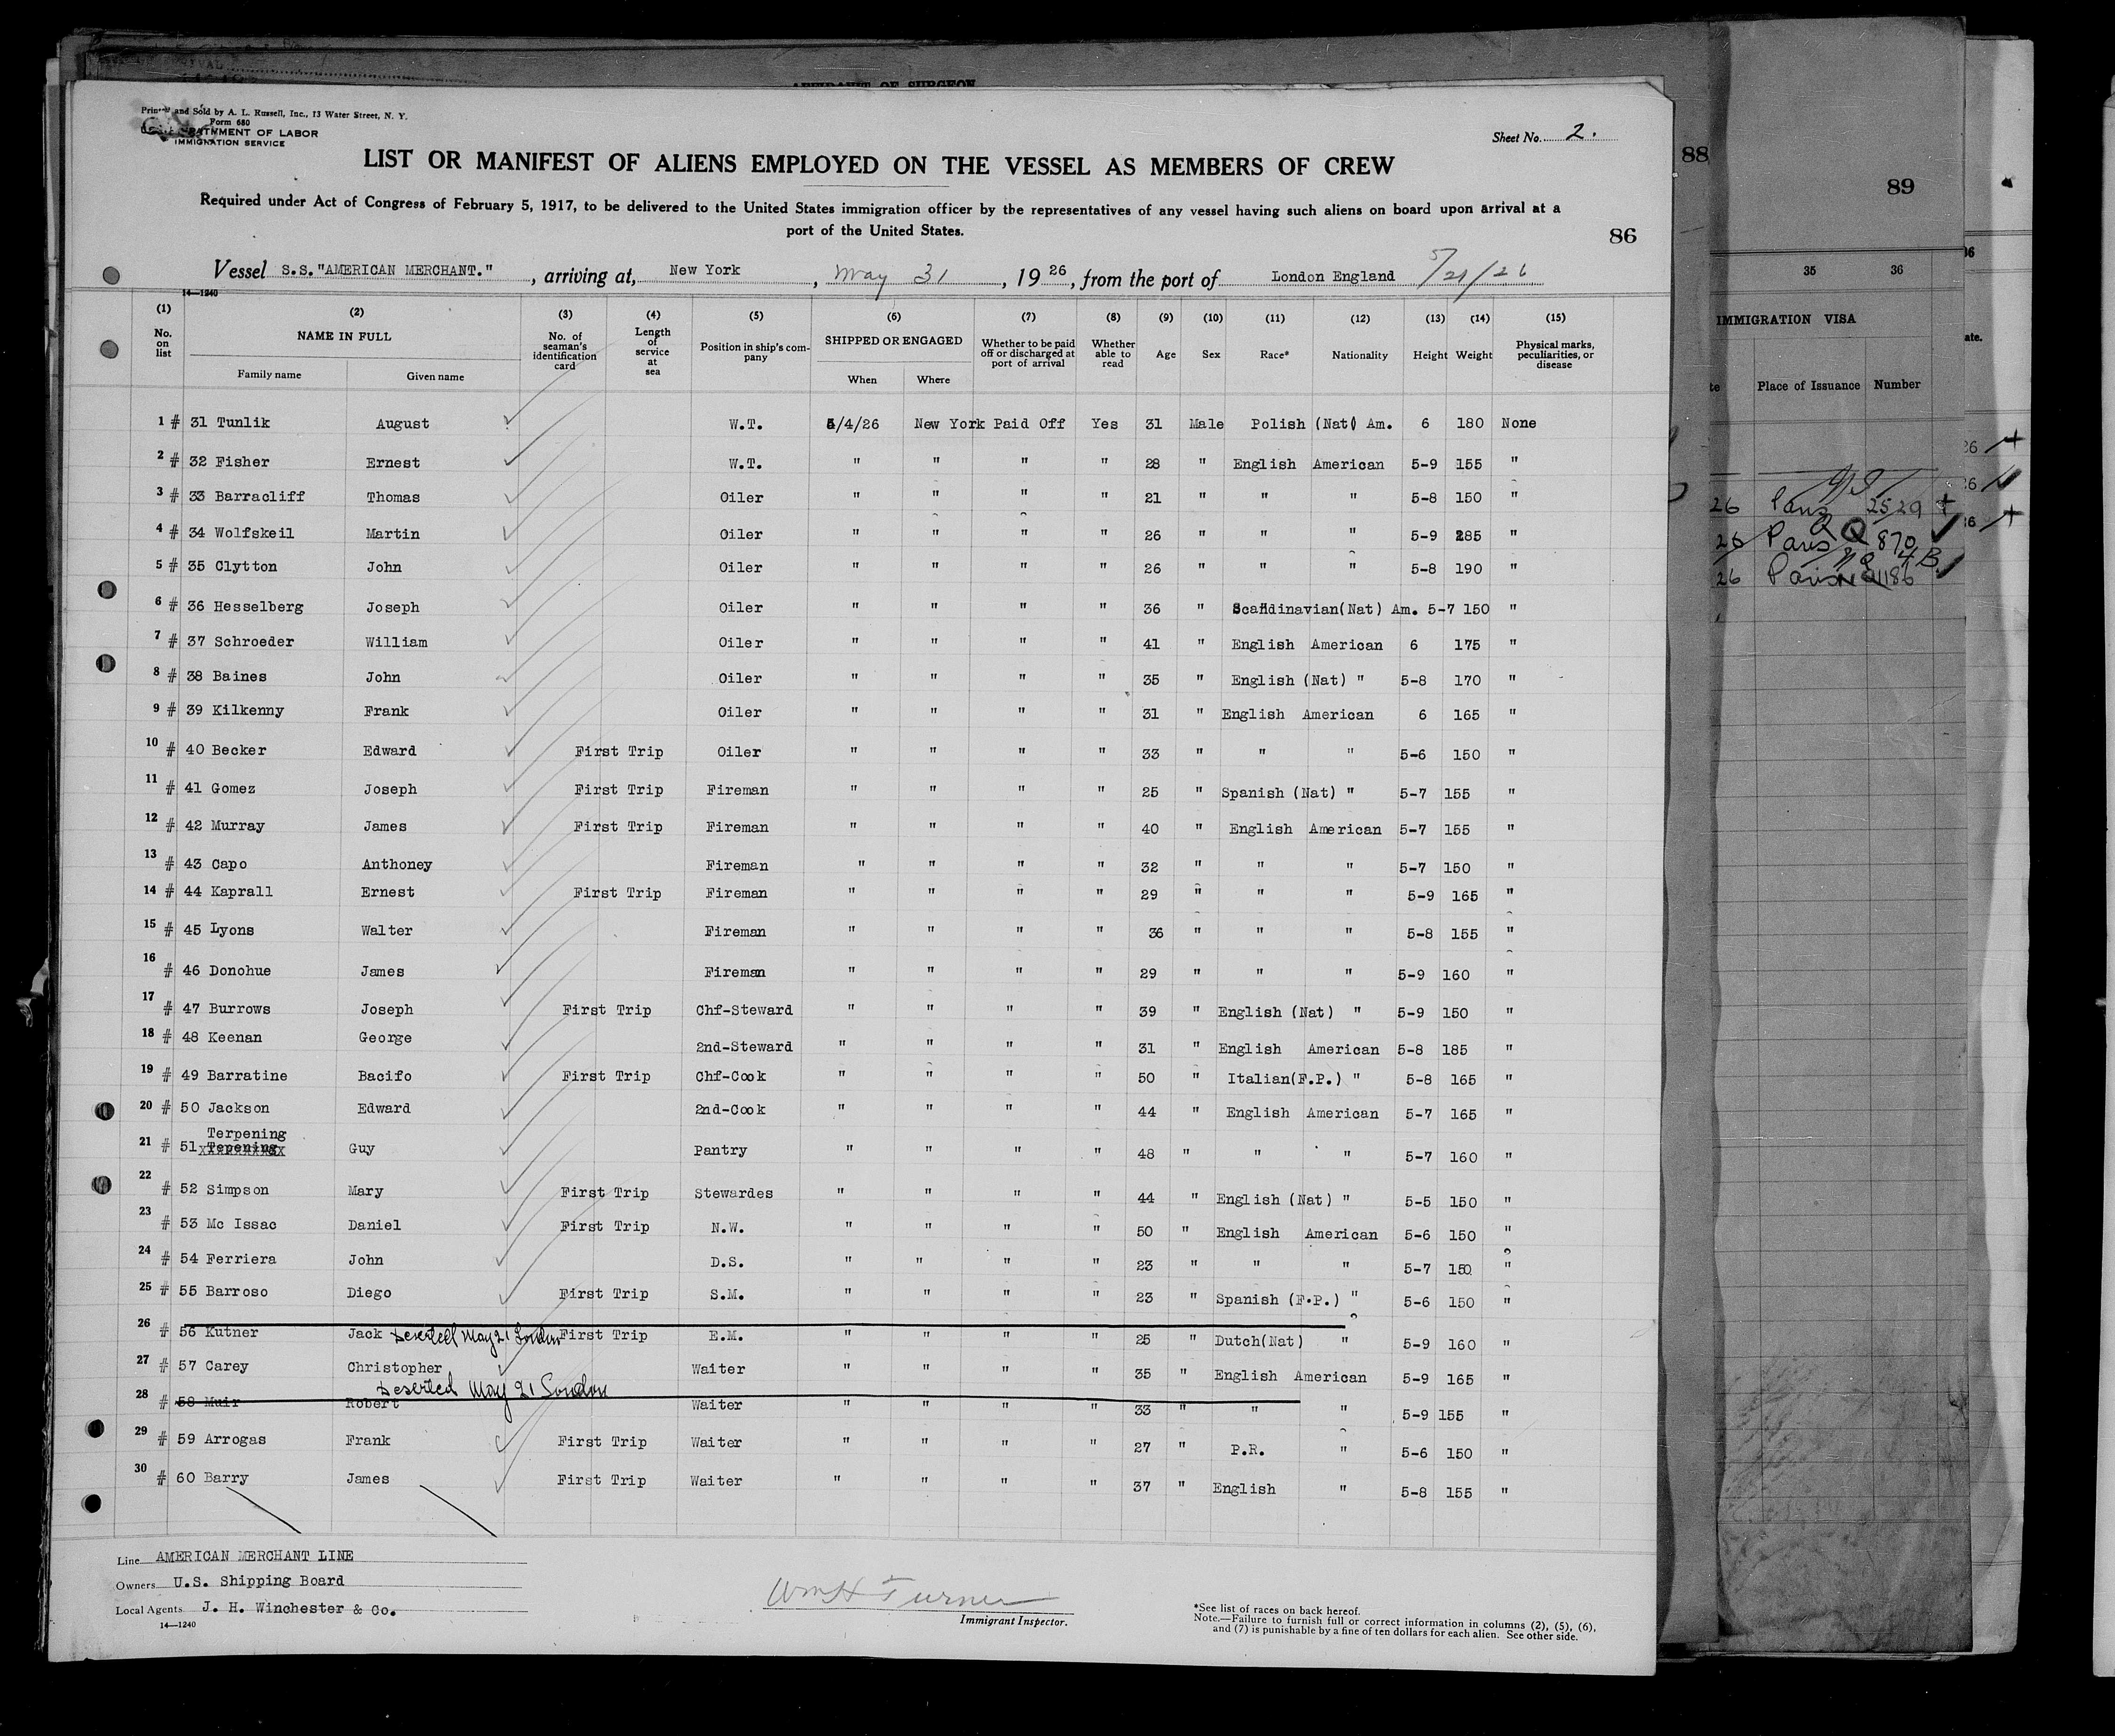 AFFIDAVIT OF SURGEON
Printed and Sold by A. L. Russell, Inc., 13 Water Street, N. Y.
Form 680
DEPARTMENT OF LABOR
IMMIGRATION SERVICE
Sheet No. 2.
LIST OR MANIFEST OF ALIENS EMPLOYED ON THE VESSEL AS MEMBERS OF CREW
Required under Act of Congress of February 5, 1917, to be delivered to the United States immigration officer by the representatives of any vessel having such aliens on board upon arrival at a
port of the United States.
86
Vessel S.S."AMERICAN MERCHANT." , arriving at, New York , May 31 , 19 26 , from the port of London England 5/21/26
14—1240
(1) (2) (3) (4) (5) (6) (7) (8) (9) (10) (11) (12) (13) (14) (15)
No. on list NAME IN FULL Family name Given name No. of seaman's identification card Length of service at sea Position in ship's company SHIPPED OR ENGAGED When Where Whether to be paid off or discharged at port of arrival Whether able to read Age Sex Race* Nationality Height Weight Physical marks, peculiarities, or disease
1 # 31 Tunlik August W.T. 5/4/26 New York Paid Off Yes 31 Male Polish (Nat) Am. 6 180 None
2 # 32 Fisher Ernest W.T. " " " " 28 " English American 5-9 155 "
3 # 33 Barracliff Thomas Oiler " " " " 21 " " " 5-8 150 "
4 # 34 Wolfskeil Martin Oiler " " " " 26 " " " 5-9 185 "
5 # 35 Clytton John Oiler " " " " 26 " " " 5-8 190 "
6 # 36 Hesselberg Joseph Oiler " " " " 36 " Scandinavian(Nat) Am. 5-7 150 "
7 # 37 Schroeder William Oiler " " " " 41 " English American 6 175 "
8 # 38 Baines John Oiler " " " " 35 " English (Nat) " 5-8 170 "
9 # 39 Kilkenny Frank Oiler " " " " 31 " English American 6 165 "
10 # 40 Becker Edward First Trip Oiler " " " " 33 " " " 5-6 150 "
11 # 41 Gomez Joseph First Trip Fireman " " " " 25 " Spanish (Nat) " 5-7 155 "
12 # 42 Murray James First Trip Fireman " " " " 40 " English American 5-7 155 "
13 # 43 Capo Anthoney Fireman " " " " 32 " " " 5-7 150 "
14 # 44 Kaprall Ernest First Trip Fireman " " " " 29 " " " 5-9 165 "
15 # 45 Lyons Walter Fireman " " " " 36 " " " 5-8 155 "
16 # 46 Donohue James Fireman " " " " 29 " " " 5-9 160 "
17 # 47 Burrows Joseph First Trip Chf-Steward " " " " 39 " English (Nat) " 5-9 150 "
18 # 48 Keenan George 2nd-Steward " " " " 31 " English American 5-8 185 "
19 # 49 Barratine Bacifo First Trip Chf-Cook " " " " 50 " Italian(F.P.) " 5-8 165 "
20 # 50 Jackson Edward 2nd-Cook " " " " 44 " English American 5-7 165 "
Terpening
21 # 51 Tepening Guy Pantry " " " " 48 " " " 5-7 160 "
22 # 52 Simpson Mary First Trip Stewardes " " " " 44 " English (Nat) " 5-5 150 "
23 # 53 Mc Issac Daniel First Trip N.W. " " " " 50 " English American 5-6 150 "
24 # 54 Ferriera John D.S. " " " " 23 " " " 5-7 150 "
25 # 55 Barroso Diego First Trip S.M. " " " " 23 " Spanish (F.P.) " 5-6 150 "
26 # 56 Kutner Jack Deserted May 21 London First Trip E.M. " " " " 25 " Dutch(Nat) " 5-9 160 "
27 # 57 Carey Christopher Waiter " " " " 35 " English American 5-9 165 "
Deserted May 21 London
28 # 58 Muir Robert Waiter " " " " 33 " " " 5-9 155 "
29 # 59 Arrogas Frank First Trip Waiter " " " " 27 " P.R. " 5-6 150 "
30 # 60 Barry James First Trip Waiter " " " " 37 " English " 5-8 155 "
Line AMERICAN MERCHANT LINE
Owners U.S. Shipping Board
Local Agents J. H. Winchester & Co.
14—1240
Wm H Turner
Immigrant Inspector.
*See list of races on back hereof.
Note.—Failure to furnish full or correct information in columns (2), (5), (6),
and (7) is punishable by a fine of ten dollars for each alien. See other side.
88
89
35 36
IMMIGRATION VISA
Place of Issuance Number
26 Paris 2529
26 Paris 870
26 Paris 1186